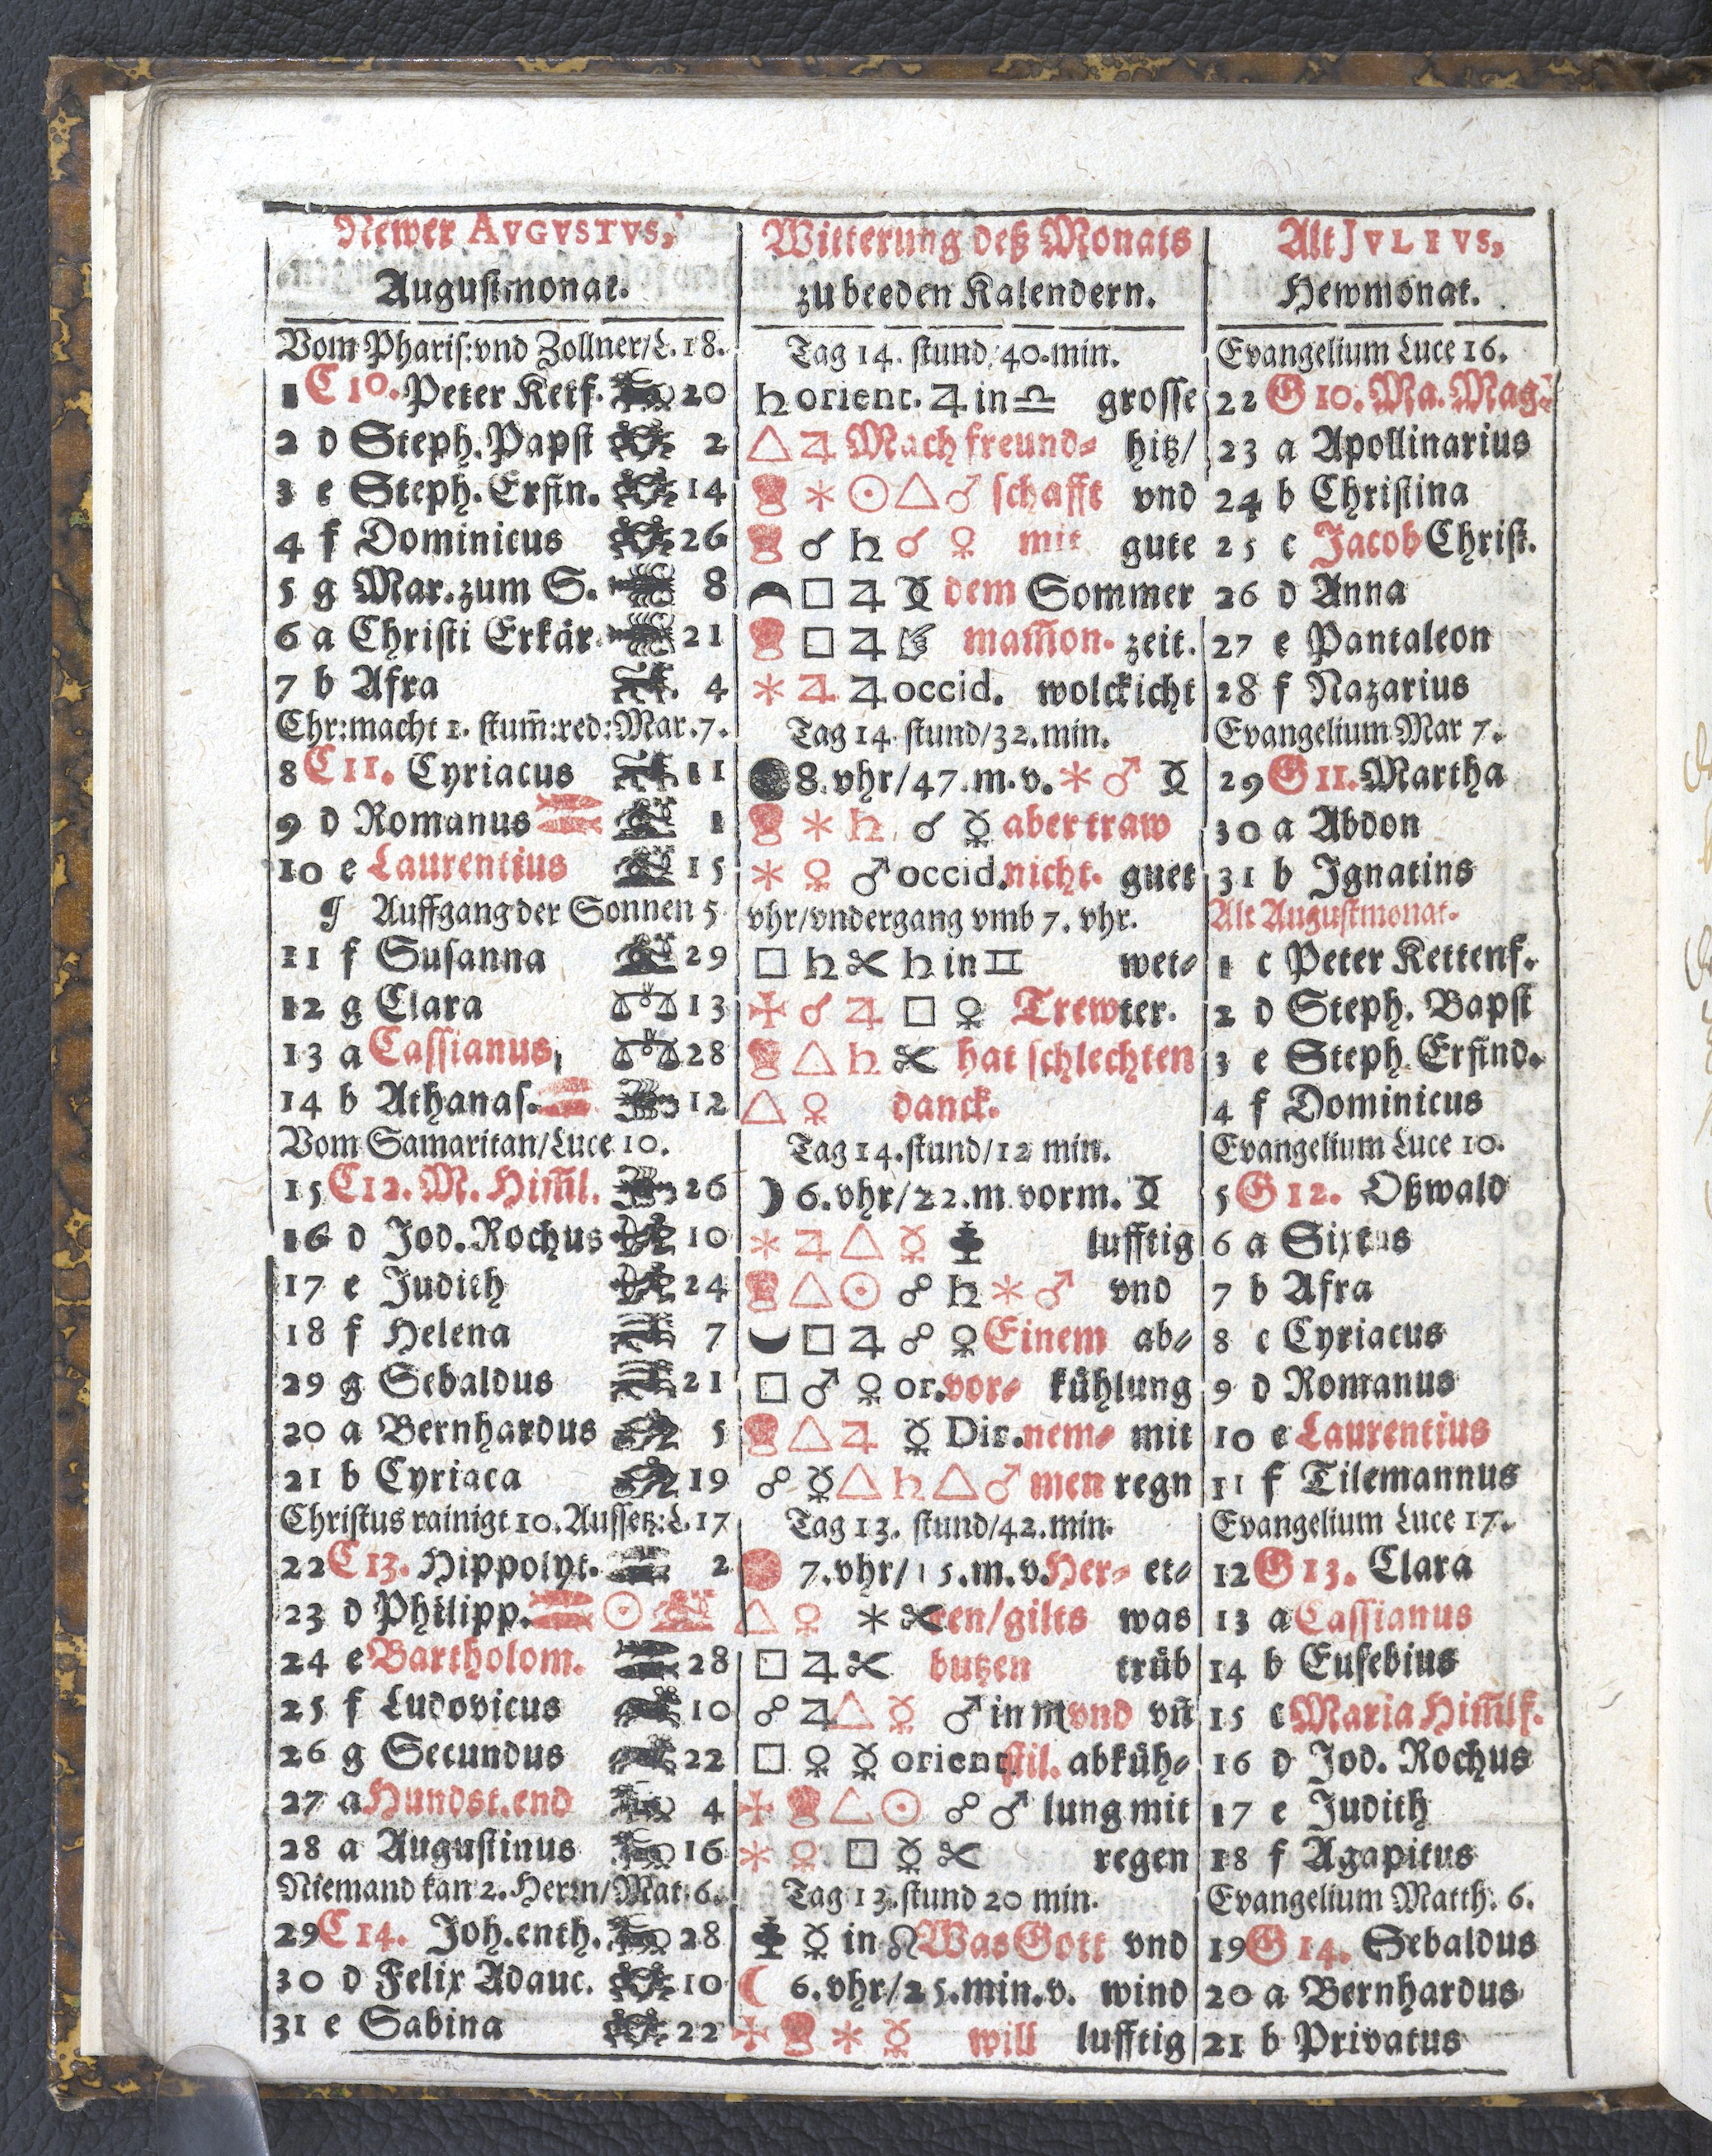 Newer AVGVSTVS,
Augustmonat.
Vom Pharis: vnd Zollner/L. 18.
1 C 10. Peter Ketf. 20
2 d Steph. Papst 2
3 e Steph. Erfin. 14
4 f Dominicus 26
5 g Mar. zum S. 8
6 a Christi Erkär. 21
7 b Afra 4
Chr: macht 1. stum̃: red: Mar. 7.
8 C 11. Cyriacus 11
9 d Romanus ♓ 1
10 e Laurentius 15
¶ Auffgang der Sonnen 5
11 f Susanna 29
12 g Clara 13
13 a Cassianus, 28
14 b Athanas. 12
Vom Samaritan/Luce 10.
15 C 12. M. Him̃l. 26
16 d Jod. Rochus 10
17 e Judith 24
18 f Helena 7
29 g Sebaldus 21
20 a Bernhardus 5
21 b Cyriaca 19
Christus rainigt 10. Aussetz: L. 17
22 C 13. Hippolyt. 2
23 d Philipp. ♓ ☉
24 e Bartholom. 28
25 f Ludovicus 10
26 g Secundus 22
27 a Hundst. end 4
28 a Augustinus 16
Niemand kan 2. Herrn/Mat: 6.
29 C 14. Joh. enth. 28
30 d Felix Adauc. 10
31 e Sabina 22
Witterung deß Monats
zu beeden Kalendern.
Tag 14. stund/40. min.
♄ orient. ♃ in ♎ grosse
△ ♃ Mach freund⸗ hitz/
⚹ ☉ △ ♂ schafft vnd
☌ ♄ ☌ ♀ mit gute
□ ♃ ☿ dem Sommer
□ ♃ mam̃on. zeit.
⚹ ♃ ♃ occid. wolckicht
Tag 14. stund/32. min.
8. vhr/47. m. v. ⚹ ♂ ☿
⚹ ♄ ☌ ☿ aber traw
⚹ ♀ ♂ occid. nicht. guet
vhr/vndergang vmb 7. vhr.
□ ♄ ✂ ♄ in ♊ wet⸗
✠ ☌ ♃ □ ♀ Trew ter.
△ ♄ ✂ hat schlechten
△ ♀ danck.
Tag 14. stund/12 min.
☽ 6. vhr/22. m. vorm. ☿
⚹ ♃ △ ☿ lufftig
△ ☉ ☍ ♄ ⚹ ♂ vnd
□ ♃ ☍ ♀ Einem ab⸗
□ ♂ ♀ or. vor⸗ kühlung
△ ♃ ☿ Dir. nem⸗ mit
☍ ☿ △ ♄ △ ♂ men regn
Tag 13. stund/42. min.
7. vhr/15. m. v. Her⸗ et⸗
△ ♀ ⚹ ✂ ren/gilts was
□ ♃ ✂ butzen trüb
☍ ♃ △ ☿ ♂ in ♍ vnd vñ
□ ♀ ☿ orient stil. abküh⸗
✠ △ ☉ ☍ ♂ lung mit
⚹ ♀ □ ☿ ✂ regen
Tag 13. stund 20 min.
☿ in ☊ Was Gott vnd
☾ 6. vhr/25. min. v. wind
✠ ⚹ ☿ will lufftig
Alt JVLIVS,
Hewmonat.
Evangelium Luce 16.
22 G 10. Ma. Mag.
23 a Apollinarius
24 b Christina
25 c Jacob Christ.
26 d Anna
27 e Pantaleon
28 f Nazarius
Evangelium Mar 7.
29 G 11. Martha
30 a Abdon
31 b Ignatius
Alt Augustmonat.
1 c Peter Kettenf.
2 d Steph. Bapst
3 e Steph. Erfind.
4 f Dominicus
Evangelium Luce 10.
5 G 12. Oßwald
6 a Sixtus
7 b Afra
8 c Cyriacus
9 d Romanus
10 e Laurentius
11 f Tilemannus
Evangelium Luce 17.
12 G 13. Clara
13 a Cassianus
14 b Eusebius
15 c Maria Him̃lf.
16 d Jod. Rochus
17 e Judith
18 f Agapitus
Evangelium Matth: 6.
19 G 14. Sebaldus
20 a Bernhardus
21 b Privatus